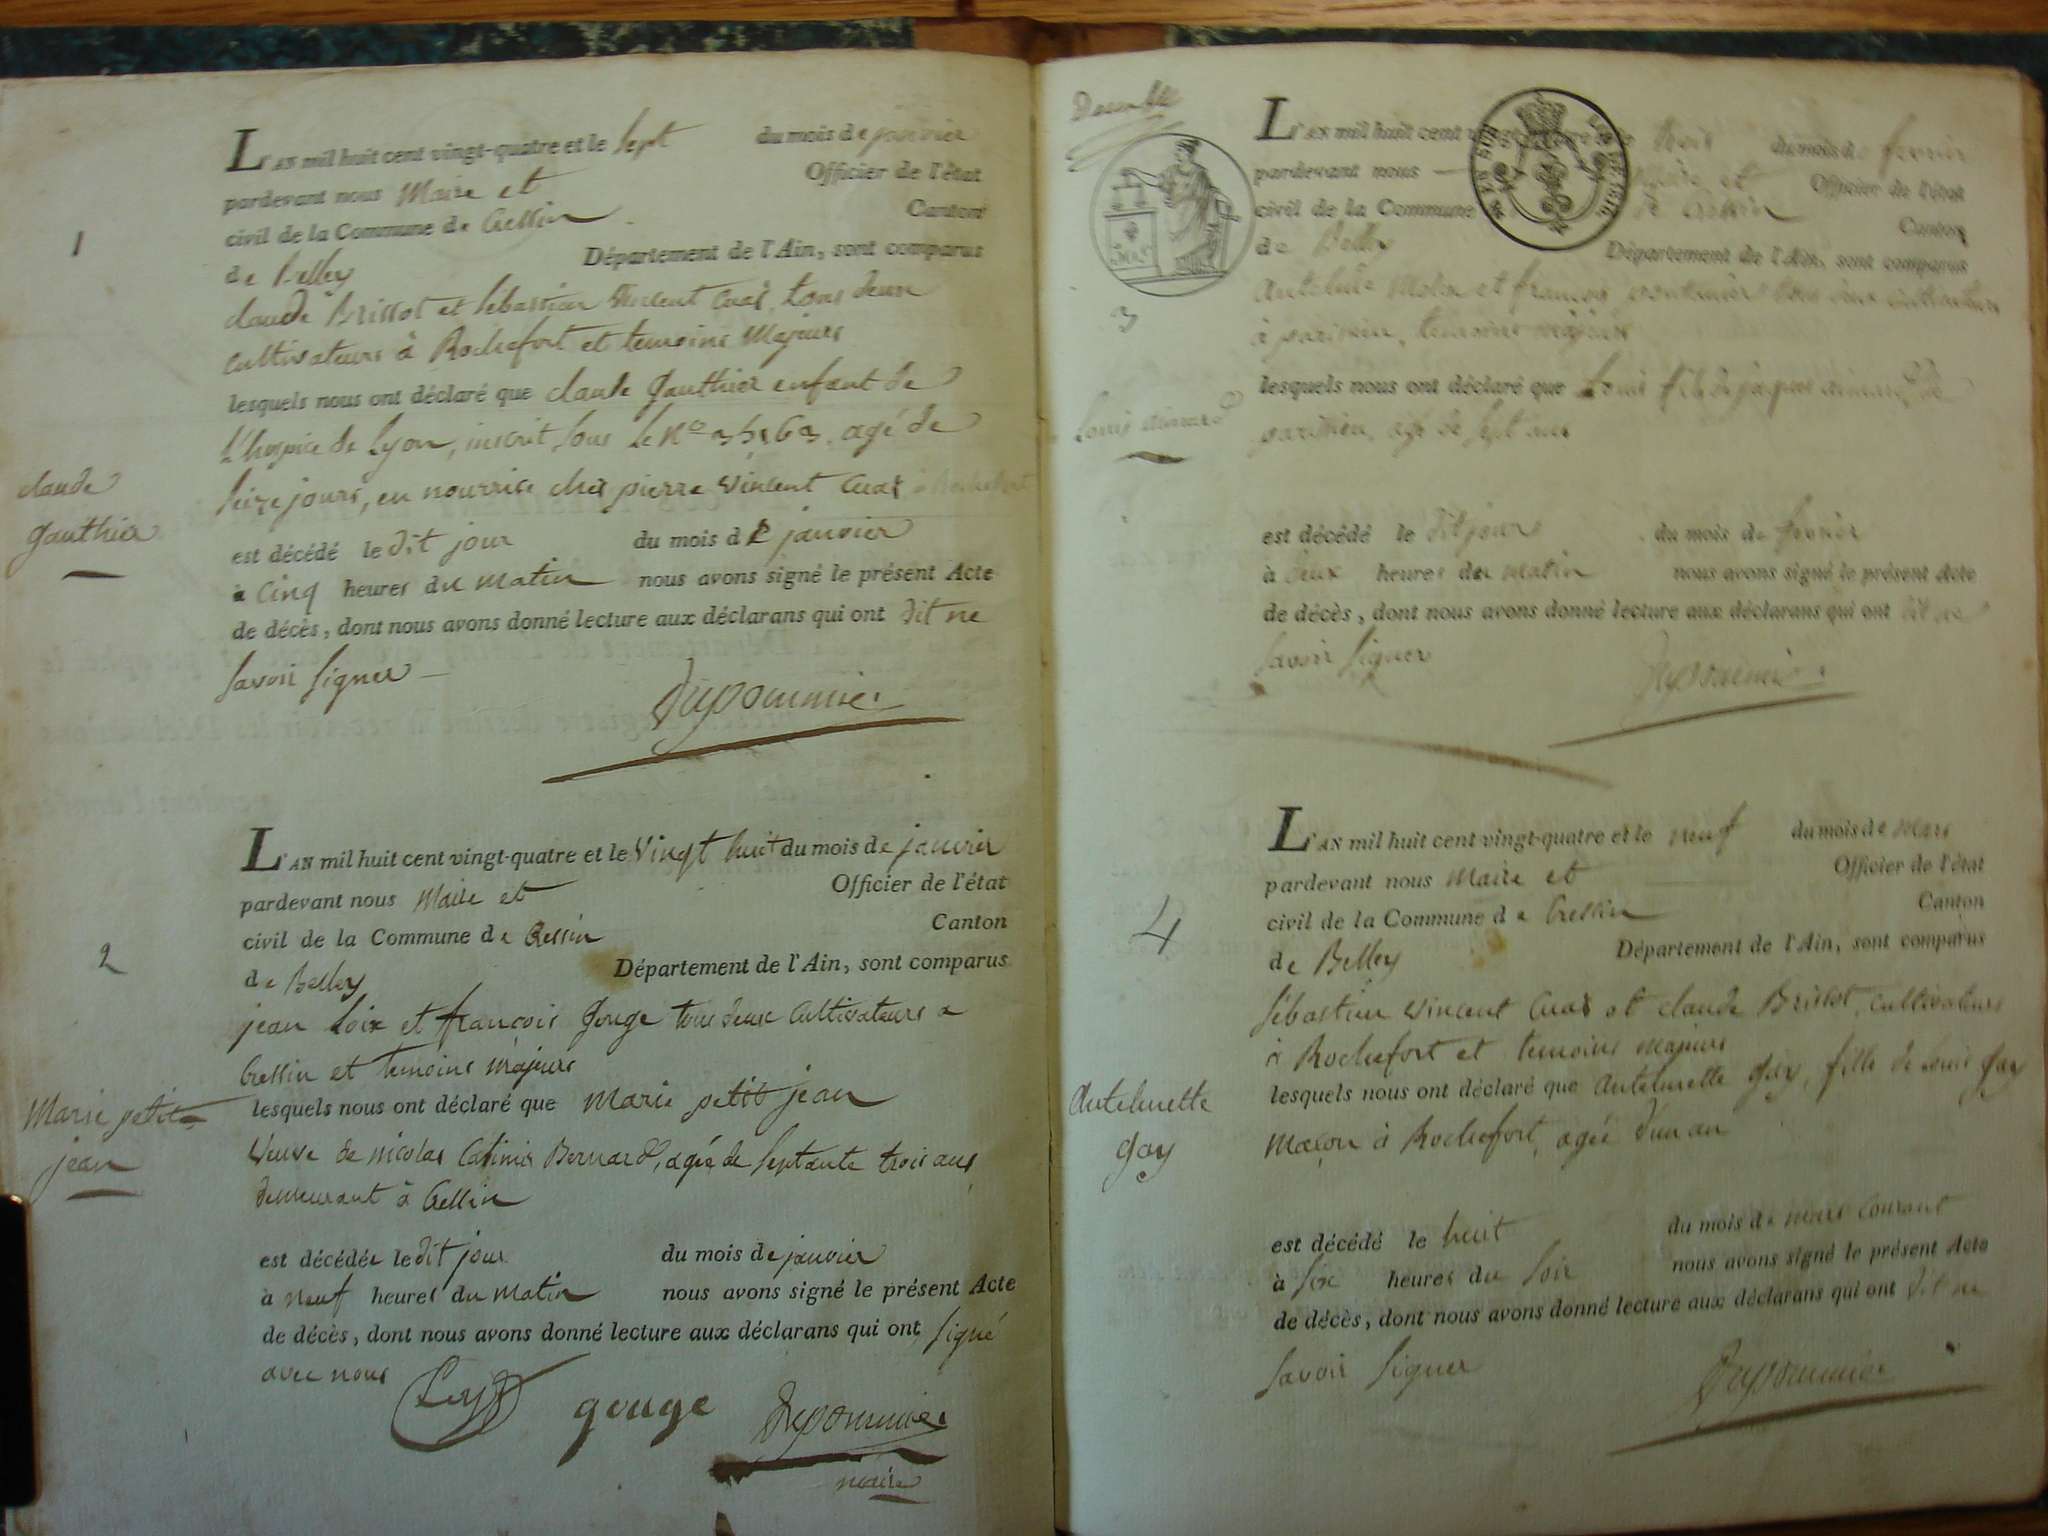 1
L'AN mil huit cent vingt-quatre et le Sept du mois de janvier
pardevant nous Maire et Officier de l'état
civil de la Commune de Cressin Canton
de Belley Département de l'Ain, sont comparus
claude Brissot et Sébastien Vincent Cuaz, tous deux
cultivateurs à Rochefort et temoins Majeurs
lesquels nous ont déclaré que claude Gauthier enfant de
L'hospice de Lyon, inscrit sous le N° agé de
jours, en nourrice chez pierre Vincent Cuaz à Rochefort
est décédé le dit jour du mois de janvier
à Cinq heures du matin nous avons signé le présent Acte
de décès, dont nous avons donné lecture aux déclarans qui ont dit ne
savoir signer
claude
gauthier
Dupommier
L'AN mil huit cent vingt-quatre et le Vingt huit du mois de janvier
pardevant nous Maire et Officier de l'état
civil de la Commune de Cressin Canton
de Belley Département de l'Ain, sont comparus
2
jean Loix et françois Gouge tous deux Cultivateurs a
Cressin et temoins majeurs
lesquels nous ont déclaré que Marie petit jean
Veuve de nicolas Bernard, agée de septante trois ans
demeurant à Cressin
Marie petit
jean
est décédée le dit jour du mois de janvier
à neuf heures du Matin nous avons signé le présent Acte
de décès, dont nous avons donné lecture aux déclarans qui ont signé
avec nous
gouge Dupommier
maire
L'AN mil huit cent vingt-quatre et le trois du mois de fevrier
pardevant nous Maire et Officier de l'état
civil de la Commune de Cressin Canton
de Belley Département de l'Ain, sont comparus
Antelme et françois tous deux cultivateurs
à parissieu, temoins majeurs
3
lesquels nous ont déclaré que Louis fils de jaques de
parissieu, agé de sept ans
Louis
est décédé le dit jour du mois de fevrier
à deux heures du matin nous avons signé le présent Acte
de décès, dont nous avons donné lecture aux déclarans qui ont dit ne
savoir signer
Dupommier
L'AN mil huit cent vingt-quatre et le neuf du mois de Mars
pardevant nous Maire et Officier de l'état
civil de la Commune de Cressin Canton
de Belley Département de l'Ain, sont comparus
4
Sébastien Vincent Cuaz et claude Brissot, cultivateurs
à Rochefort et temoins majeurs
lesquels nous ont déclaré que Antelmette gay, fille de Louis gay
Maçon à Rochefort, agée d'un an
Antelmette
gay
est décédé le huit du mois de mars courant
à six heures du soir nous avons signé le présent Acte
de décès, dont nous avons donné lecture aux déclarans qui ont dit ne
savoir signer
Dupommier